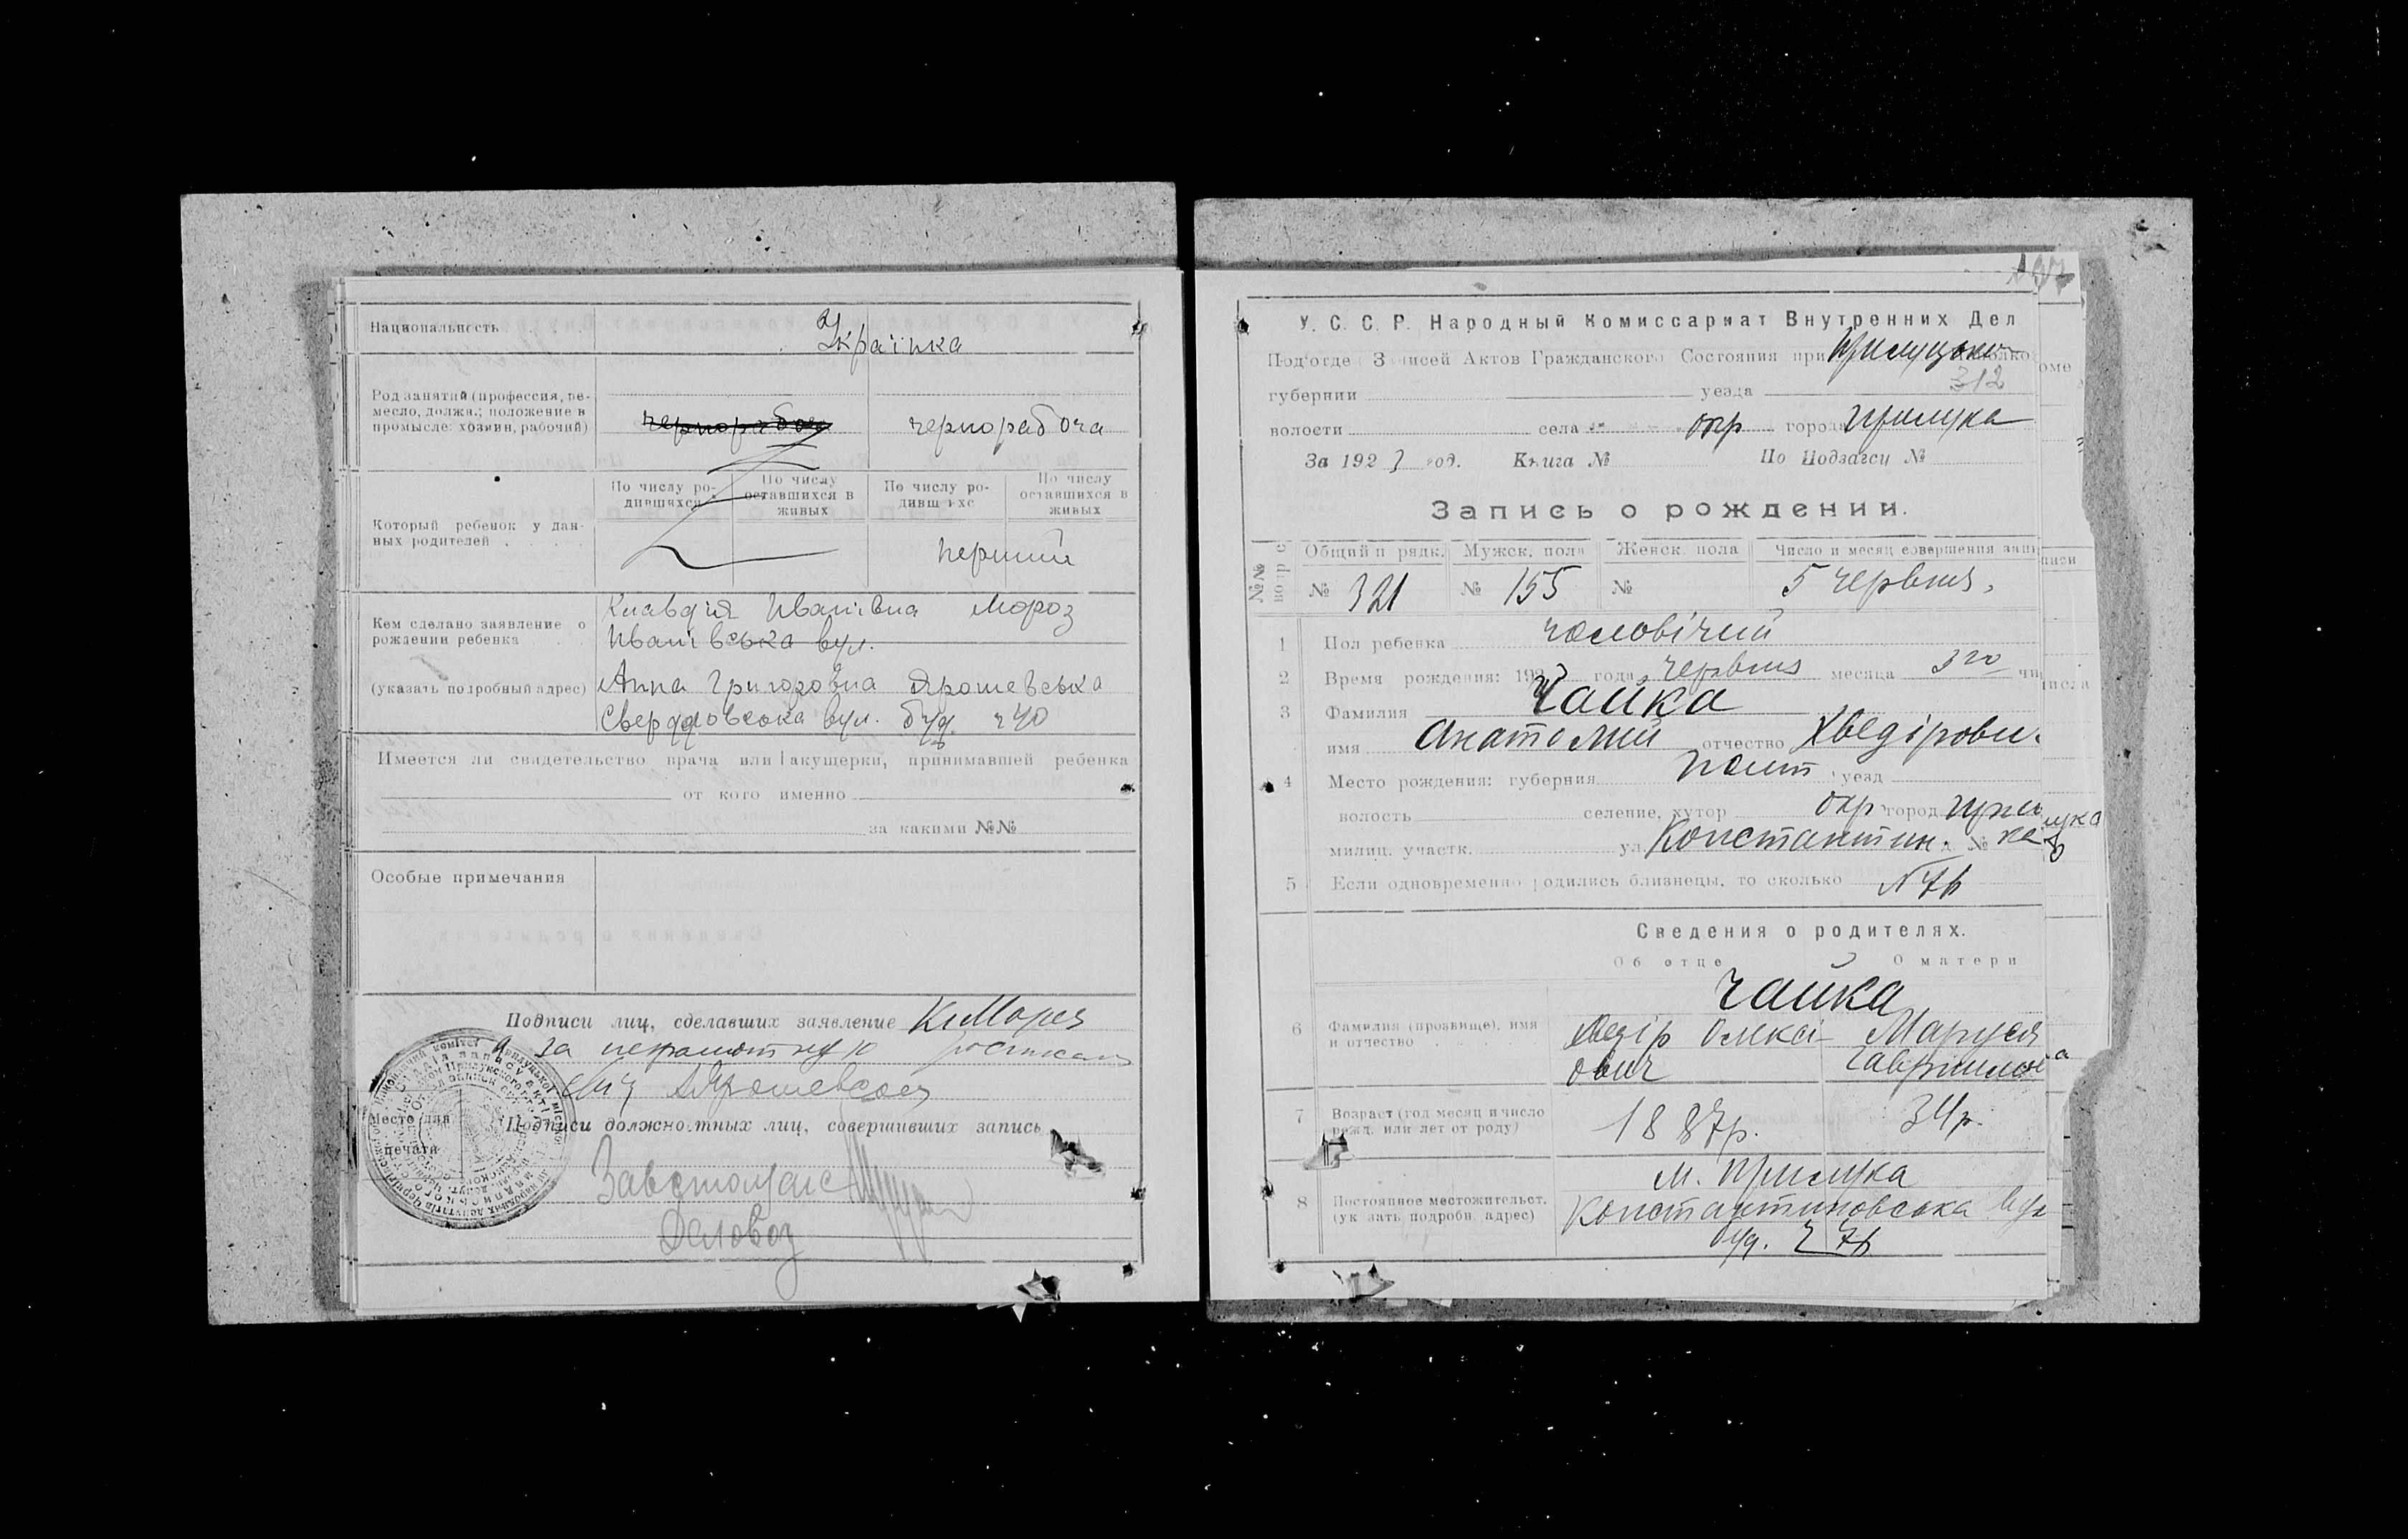 Национальность Українка
Род занятий (профессия, ре-
месло, должн.; положение в
промысле: хозяин, рабочий) чернорабоча чернорабоча
По числу ро-
дившихся По числу
оставшихся в
живых По числу ро-
дивш ихс По числу
оставшихся в
живых
Который ребенок у дан-
ных родителей . . . . перший
Кем сделано заявление о
рождении ребенка . . Клавдія Иванівна Мороз
Иванівська вул.
(указать подробный адрес) Анна Григоровна Ярошевська
Свердловська вул. буд. ч 40
Имеется ли свидетельство врача или акушерки, принимавшей ребенка
от кого именно
за какими №№
Особые примечания
Подписи лиц, сделавших заявление КлМороз
а за неграмотную
Ярошевская
Место для
печати
Подписи должностных лиц, совершивших запись
Деловод
197
У. С. С. Р. Народный Комиссариат Внутренних Дел
Под'отде Записей Актов Гражданского Состояния при Прилуцком
губернии уезда 312
волости села окр города Прилука
За 1923 год. Книга № По Подзагсу №
Запись о рождении.
№№ Общий п рядк. Мужск. пола Женск. пола Число и месяц совершения записи
№ 321 № 155 № 5 червня,
1 Пол ребенка чоловічий
2 Время рождения: 1923 года червня месяца 3го числа
3 Фамилия Чайка
имя Анатолий отчество Хведірови.
4 Место рождения: губерния Полт уезд
волость селение, хутор окр город Прилука
милиц. участк. ул. Константин. д. №
5 Если одновременно родились близнецы, то сколько
Сведения о родителях.
Об отце О матери
Чайка
6 Фамилия (прозвище), имя
и отчество . . . . Хведір Олексі- Маруся
ович Гаврииловна
7 Возраст (год месяц и число
рожд. или лет от роду) 1887р. 34р.
8 Постоянное местожительст.
(указать подробн. адрес) м. Прилука
Константиновська вул
буд.